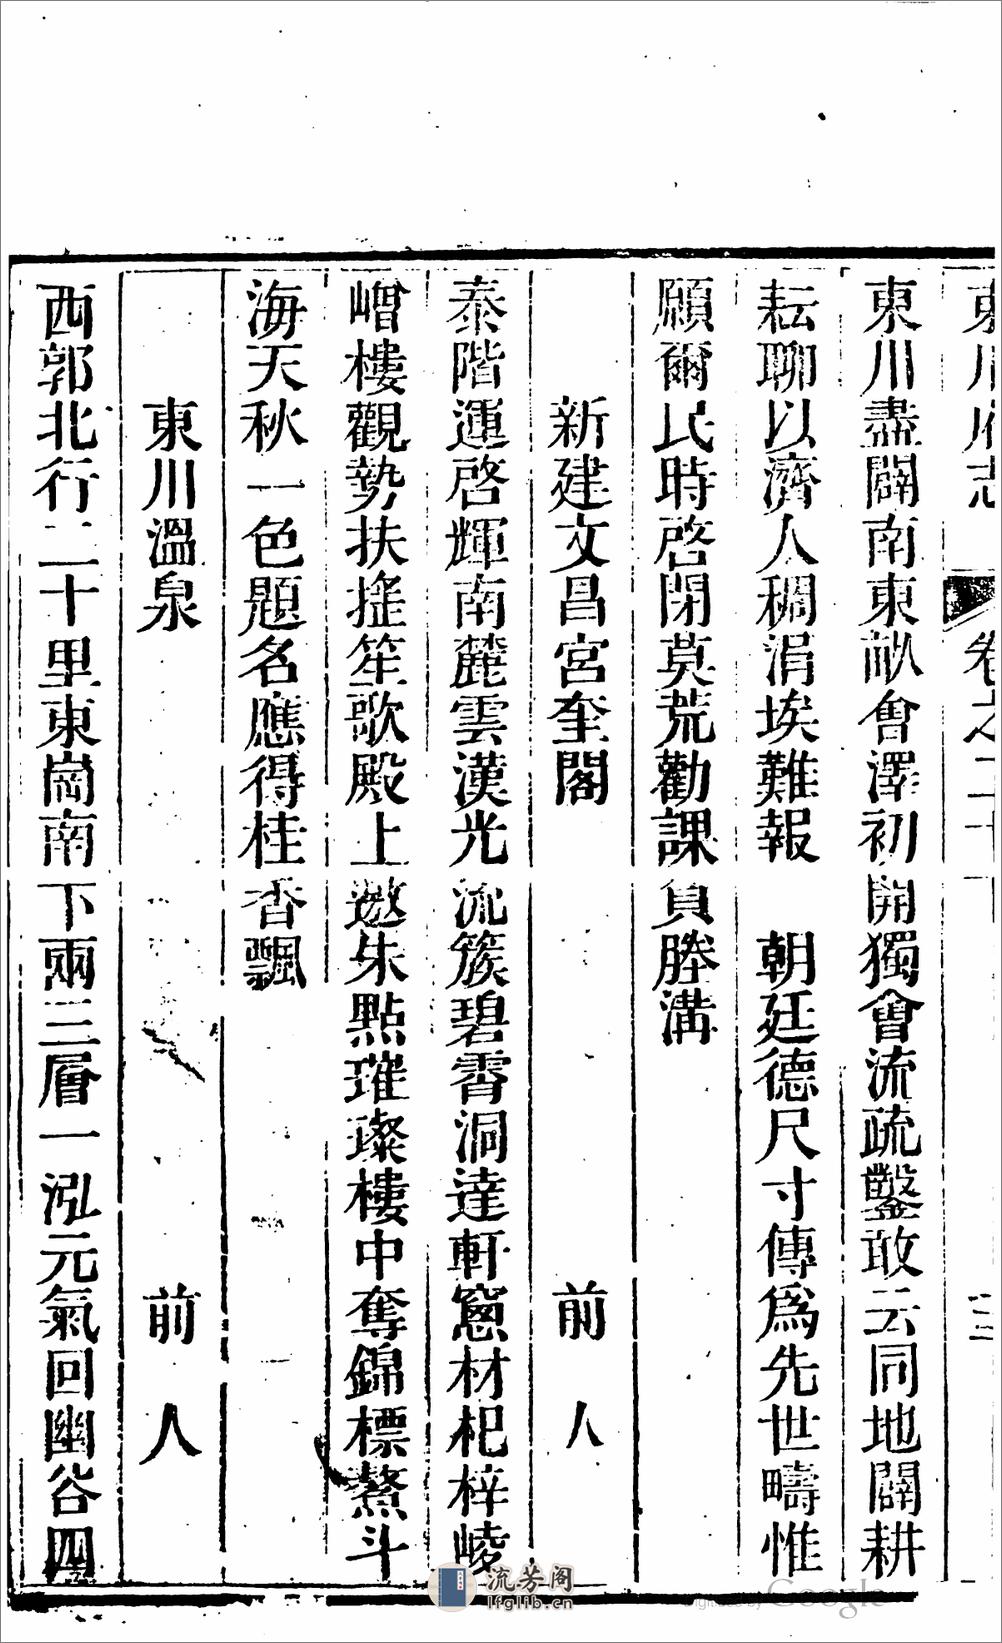 東川府志 卷之二十下
東川盡闢南東畝會澤初開獨會流疏鑿敢云同地闢耕
耘聊以濟人稠涓埃難報 朝廷德尺寸傳爲先世疇惟
願爾民時啓閉莫荒勸課負塍溝
新建文昌宮奎閣 前人
泰階運啓輝南麓雲漢光流簇碧霄洞達軒窻材杞梓崚
嶒樓觀勢扶搖笙歌殿上邀朱點璀璨樓中奪錦標鰲斗
海天秋一色題名應得桂香飄
東川溫泉 前人
西郭北行二十里東崗南下兩三層一泓元氣回幽谷四
流芳阁
lfglib.cn
Digitized by Google